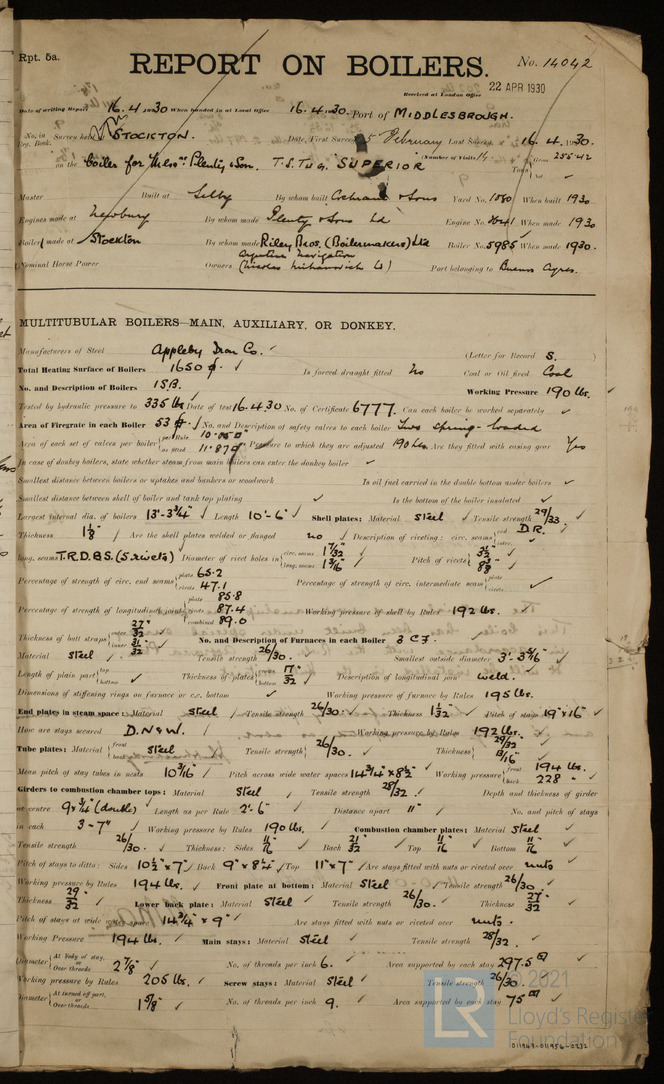 Rpt. 5a.
REPORT ON BOILERS.
No. 14042
Received at London Office 22 APR 1930
Date of writing Report 16.4.1930 When handed in at Local Office 16.4.30. Port of MIDDLESBROUGH.
No. in Reg. Book. Survey held at STOCKTON. Date, First Survey 5 February Last Survey 16.4.1930.
(Number of Visits 14)
on the boiler for Messrs Plenty & Son. T.S. Tug "SUPERIOR" Tons Gross 256.42 Net
Master Built at Selby By whom built Cochrane & Sons Yard No. 1080 When built 1930
Engines made at Newbury By whom made Plenty & Sons Ld Engine No. When made 1930
Boiler made at Stockton By whom made Riley Bros. (Boilermakers) Ltd Boiler No. 5985 When made 1930.
Nominal Horse Power Owners Argentine Navigation (Nicolas Mihanovich Ld) Port belonging to Buenos Ayres.
MULTITUBULAR BOILERS—MAIN, AUXILIARY, OR DONKEY.
Manufacturers of Steel Appleby Iron Co. (Letter for Record S.)
Total Heating Surface of Boilers 1650 Is forced draught fitted No Coal or Oil fired Coal
No. and Description of Boilers 1SB. Working Pressure 190 lbs.
Tested by hydraulic pressure to 335 lbs Date of test 16.4.30 No. of Certificate 6777. Can each boiler be worked separately ✓
Area of Firegrate in each Boiler 53 No. and Description of safety valves to each boiler Two spring-loaded
Area of each set of valves per boiler { per Rule as fitted 11.87 Pressure to which they are adjusted 190 lbs Are they fitted with easing gear Yes
In case of donkey boilers, state whether steam from main boilers can enter the donkey boiler ✓
Smallest distance between boilers or uptakes and bunkers or woodwork Is oil fuel carried in the double bottom under boilers ✓
Smallest distance between shell of boiler and tank top plating ✓ Is the bottom of the boiler insulated ✓
Largest internal dia. of boilers 13'-3¾" Length 10'-6" Shell plates: Material Steel Tensile strength 29/33.
Thickness 1⅛" Are the shell plates welded or flanged no Description of riveting: circ. seams { end D.R. inter.
long. seams T.R.D.B.S. (5 rivets) Diameter of rivet holes in { circ. seams 1 7/32" long. seams 1 3/16" Pitch of rivets {
Percentage of strength of circ. end seams { plate 65.2 rivets 47.1 Percentage of strength of circ. intermediate seam { plate rivets ✓
Percentage of strength of longitudinal joint { plate 85.8 rivets 87.4 combined 89.0 Working pressure of shell by Rules 192 lbs.
Thickness of butt straps { outer 27/32" inner 31/32" No. and Description of Furnaces in each Boiler 3 C.F.
Material Steel Tensile strength 26/30. Smallest outside diameter 3'-3 5/16"
Length of plain part { top bottom Thickness of plates { crown bottom 17/32" Description of longitudinal joint weld.
Dimensions of stiffening rings on furnace or c.c. bottom ✓ Working pressure of furnace by Rules 195 lbs.
End plates in steam space: Material Steel Tensile strength 26/30. Thickness 1 1/32" Pitch of stays 19" x 16"
How are stays secured D.N&W. Working pressure by Rules 192 lbs.
Tube plates: Material { front back Steel Tensile strength { 26/30. Thickness { 29/32" 13/16"
Mean pitch of stay tubes in nests 10 3/16" Pitch across wide water spaces 14¾" x 8½" Working pressure { front 194 lbs. back 228 "
Girders to combustion chamber tops: Material Steel Tensile strength 28/32. Depth and thickness of girder
at centre 9 x ¾" (double) Length as per Rule 2'-6" Distance apart 11" No. and pitch of stays
in each 3-7" Working pressure by Rules 190 lbs. Combustion chamber plates: Material Steel
Tensile strength 26/30. Thickness: Sides 11/16" Back 21/32" Top 11/16" Bottom 11/16"
Pitch of stays to ditto: Sides 10½" x 7" Back 9" x 8¾" Top 11" x 7" Are stays fitted with nuts or riveted over nuts
Working pressure by Rules 194 lbs. Front plate at bottom: Material Steel Tensile strength 26/30.
Thickness 29/32" Lower back plate: Material Steel Tensile strength 26/30. Thickness 27/32"
Pitch of stays at wide water space 14¾" x 9" Are stays fitted with nuts or riveted over nuts.
Working Pressure 194 lbs. Main stays: Material Steel Tensile strength 28/32.
Diameter { At body of stay, or Over threads 2⅞" No. of threads per inch 6. Area supported by each stay 297.5
Working pressure by Rules 205 lbs. Screw stays: Material Steel Tensile strength 26/30
Diameter { At turned off part, or Over threads 1⅝" No. of threads per inch 9. Area supported by each stay 75
LR
2021
Lloyd's Register
Foundation
011949-011956-0232